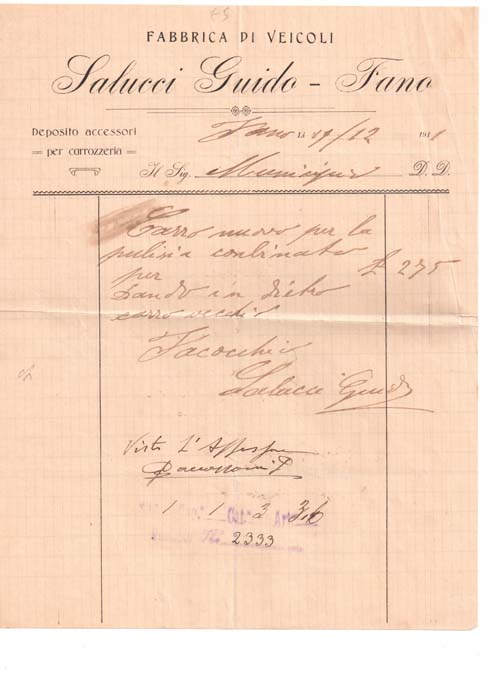 FABBRICA DI VEICOLI
Salucci Guido - Fano
Deposito accessori
per carrozzeria
Fano Li 27/12 1911
Il Sig. Municipio D. D.
Carro nuovo per la
pulisia conbinato
per £ 275
Dando in dietro
carro vecchio
Salucci Guido
Visto L'Assessore
1 1 3 36
2333